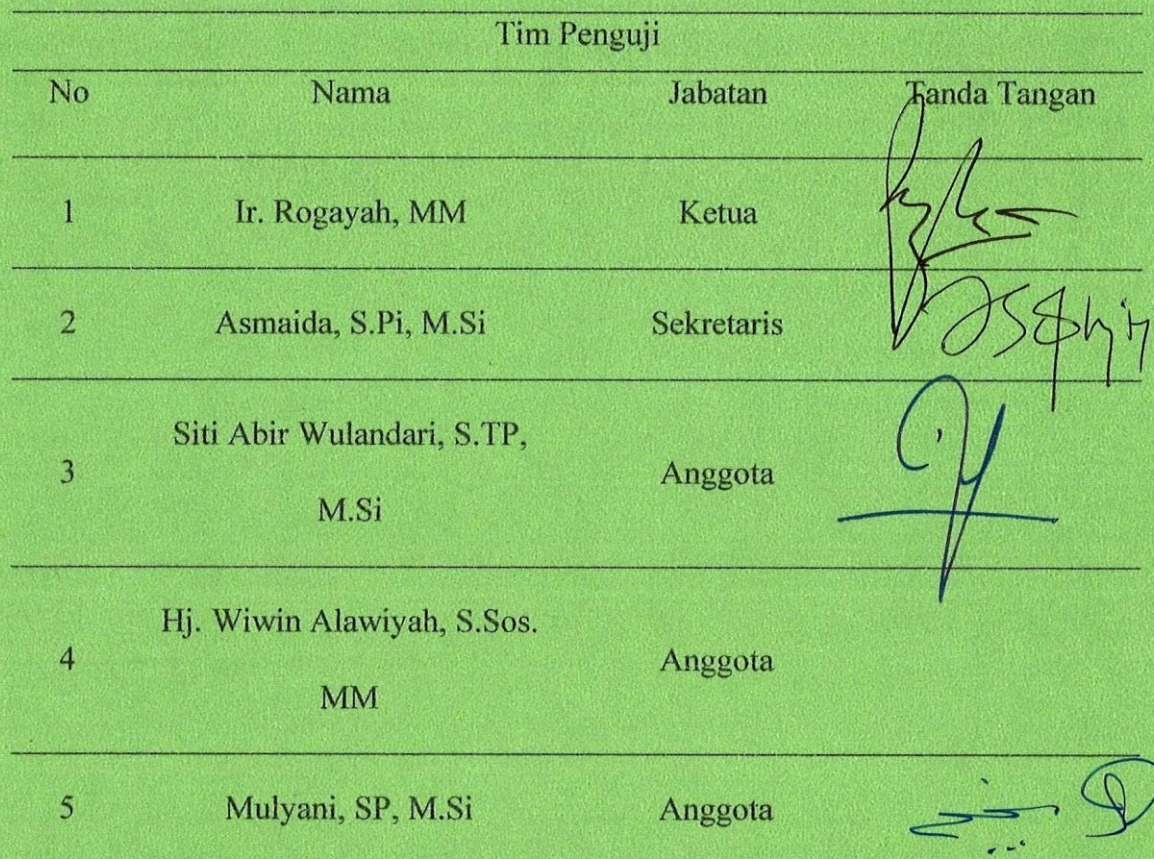 Tim Penguji
No Nama Jabatan Tanda Tangan
1 Ir. Rogayah, MM Ketua
2 Asmaida, S.Pi, M.Si Sekretaris
3 Siti Abir Wulandari, S.TP, Anggota
M.Si
4 Hj. Wiwin Alawiyah, S.Sos. Anggota
MM
5 Mulyani, SP, M.Si Anggota